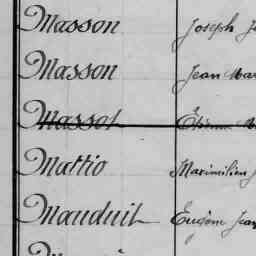 Masson Joseph
Masson Jean
Massot Étienne
Mattio Maximilien
Mauduit Eugène Jean